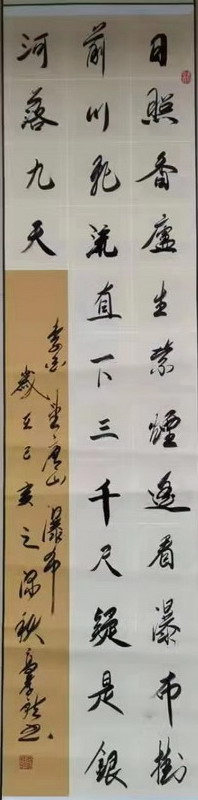 日照香廬生紫煙遙看瀑布掛
前川飛流直下三千尺疑是銀
河落九天
李白望廬山瀑布
歲在己亥之深秋